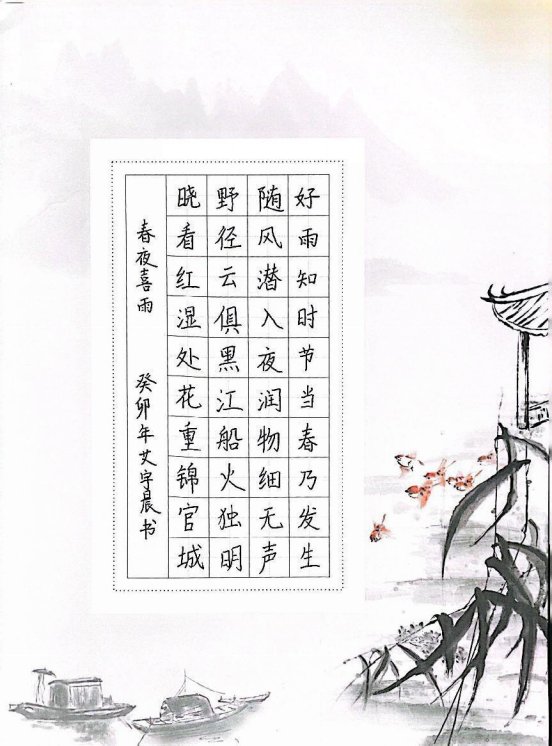 好雨知时节当春乃发生
随风潜入夜润物细无声
野径云俱黑江船火独明
晓看红湿处花重锦官城
春夜喜雨 癸卯年艾宇晨书